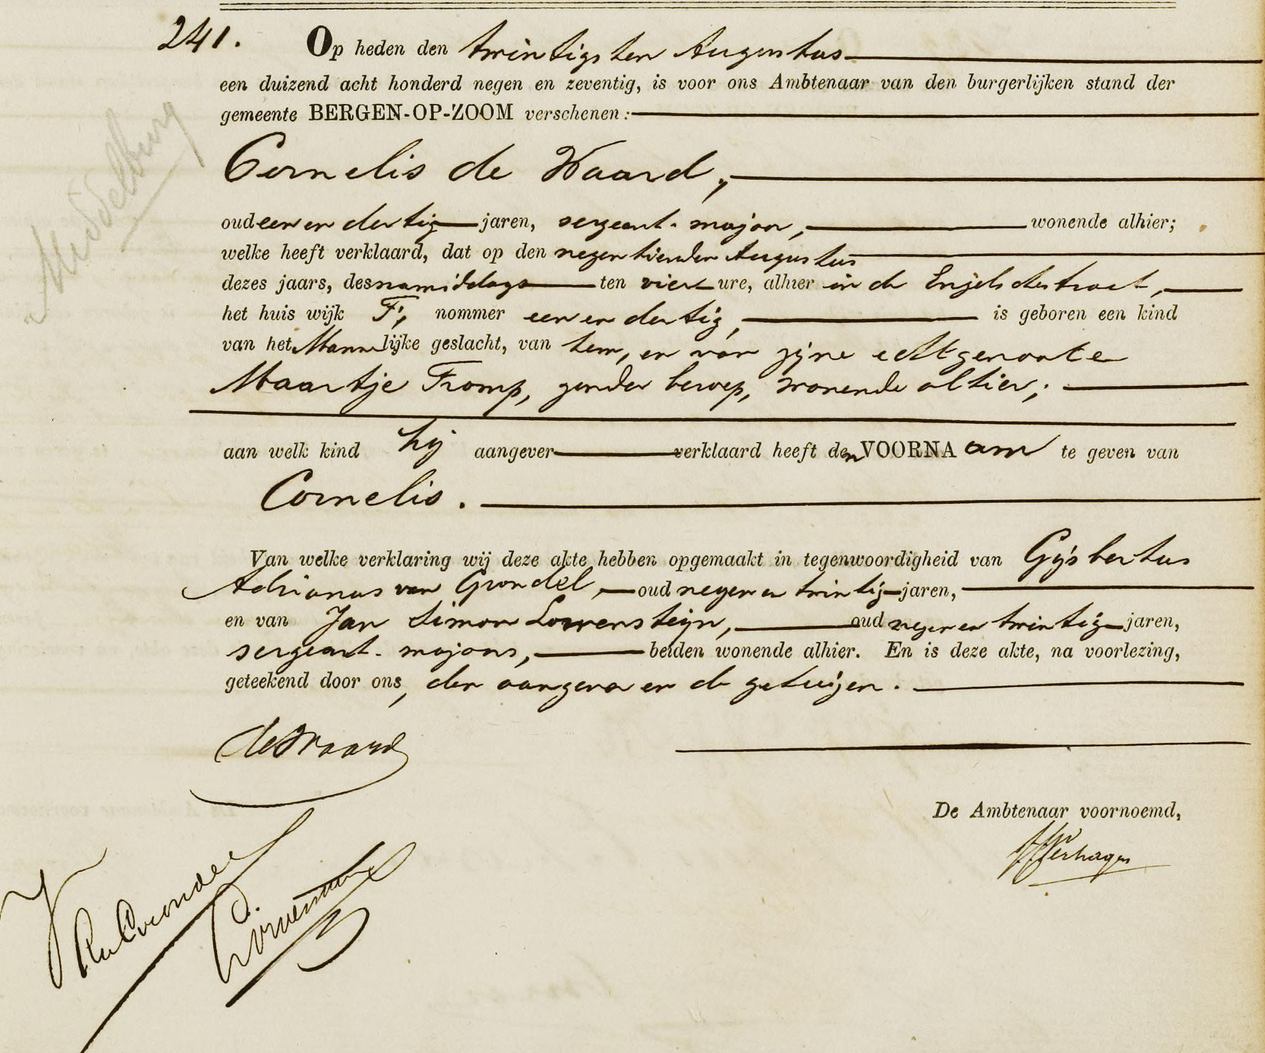 241. Op heden den twintigsten Augustus
een duizend acht honderd negen en zeventig, is voor ons Ambtenaar van den burgerlijken stand der
gemeente BERGEN-OP-ZOOM verschenen:
Middelburg
Cornelis de Waard,
oud een en dertig jaren, sergeant-majoor, wonende alhier;
welke heeft verklaard, dat op den negentienden Augustus
dezes jaars, des namiddags ten vier ure, alhier in de Engelschestraat,
het huis wijk F, nommer een en dertig, is geboren een kind
van het Mannelijke geslacht, van hem, en van zijne echtgenoote
Maartje Tromp, zonder beroep, wonende alhier;
aan welk kind hij aangever verklaard heeft den VOORNAam te geven van
Cornelis.
Van welke verklaring wij deze akte hebben opgemaakt in tegenwoordigheid van Gijsbertus
Adrianus van Grondel, oud negen en twintig jaren,
en van Jan Simon Lowensteyn, oud negen en twintig jaren,
sergeant-majoors, beiden wonende alhier. En is deze akte, na voorlezing,
geteekend door ons, den aangever en de getuigen.
de Waard
De Ambtenaar voornoemd,